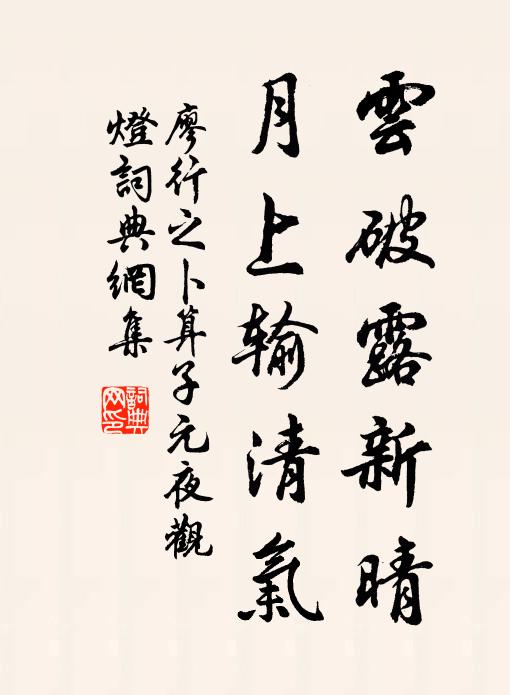 雲破露新晴
月上输清氣
廖行之卜算子元夜觀
燈詞典網集
詞典网印